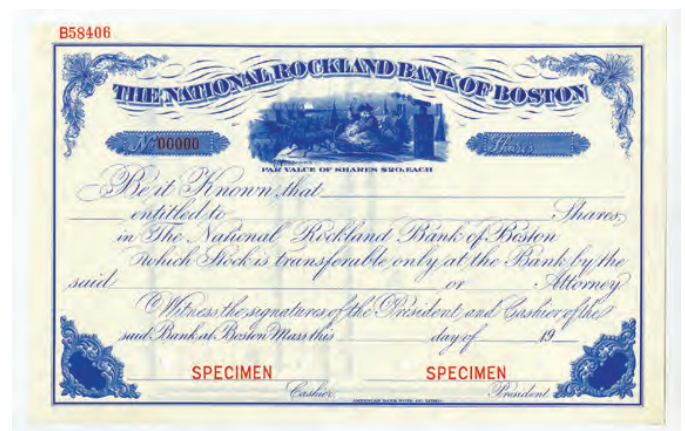 B58406
THE NATIONAL ROCKLAND BANK OF BOSTON
No. 00000
Shares
PAR VALUE OF SHARES $20. EACH
Be it Known that
entitled to Shares
in The National Rockland Bank of Boston
which Stock is transferable only at the Bank by the
said or Attorney
Witness the signatures of the President and Cashier of the
said Bank at Boston Mass this day of 19
SPECIMEN SPECIMEN
Cashier. President
AMERICAN BANK NOTE CO.